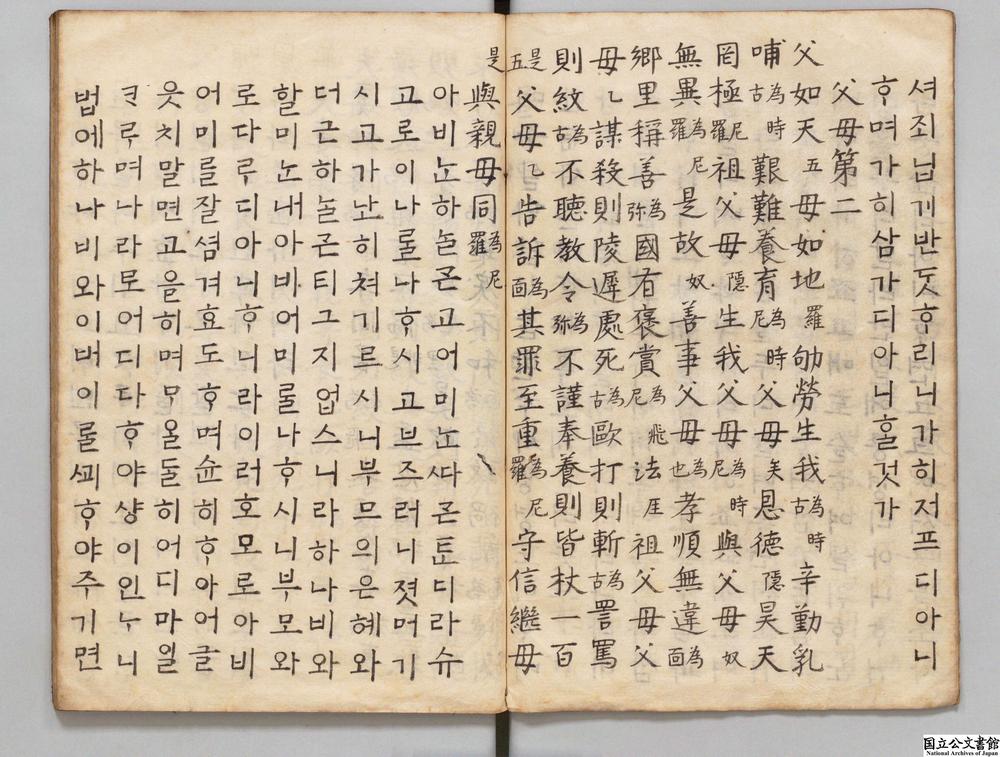 셔죄닙기반ᄃᆞᆺᄒᆞ리니가히저프디아니
ᄒᆞ며가히삼가디아니ᄒᆞᆯ것가
父母第二
父如天五母如地羅劬勞生我為時古辛勤乳
哺為時古艱難養育為時尼父母矣恩德隱昊天
罔極尼羅祖父母隱生我父母為時尼與父母奴
無異為尼羅是故奴善事父母為也孝順無違為面
鄉里稱善為弥國有褒賞為飛尼法厓祖父母父
母乙謀殺則陵遲處死古歐打則斬為古詈罵
則紋為古不聽教令為弥不謹奉養則皆杖一百
是五父母乙告訴為面其罪至重為尼羅守信繼母
是與親母同為尼羅
아비ᄂᆞᆫ하ᄂᆞᆯᄀᆞᆮ고어미ᄂᆞᆫᄯᅡᄀᆞᆮᄐᆞᆫ디라슈
고로이나ᄅᆞᆯ나ᄒᆞ시고브즈러니졋머기
시고가난히쳐기르시니부므의은혜와
더근하ᄂᆞᆯᄀᆞᆮ티그지업스니라하나비와
할미ᄂᆞᆫ내아비어미ᄅᆞᆯ나ᄒᆞ시니부모와
로다ᄅᆞ디아니ᄒᆞ니라이러호모로아비
어미를잘셤겨효도ᄒᆞ며슌히ᄒᆞ아어글
웃치말면고을히며ᄆᆞᄋᆞᆯᄃᆞᆯ히어디마일
ᄏᆞᄅᆞ며나라로어디다ᄒᆞ야샹이인ᄂᆞ니
법에하나비와이버이ᄅᆞᆯᄭᅬᄒᆞ야주기면
国立公文書館
National Archives of Japan